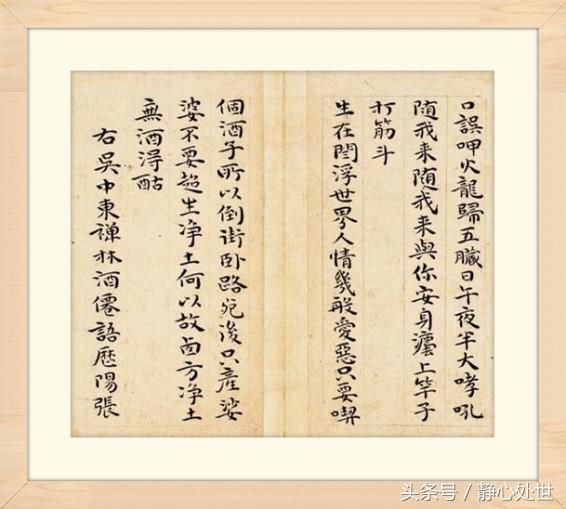 口誤呷火龍歸五臟日午夜半大哮吼
随我来随我来與你安身上竿子
打筋斗
生在閻浮世界人情幾般愛惡只要喫
個酒子所以倒街卧路死後只產娑
婆不要超生净土何以故西方净土
無酒得酤
右吳中東禅林酒僊語歷陽張
头条号 / 静心处世